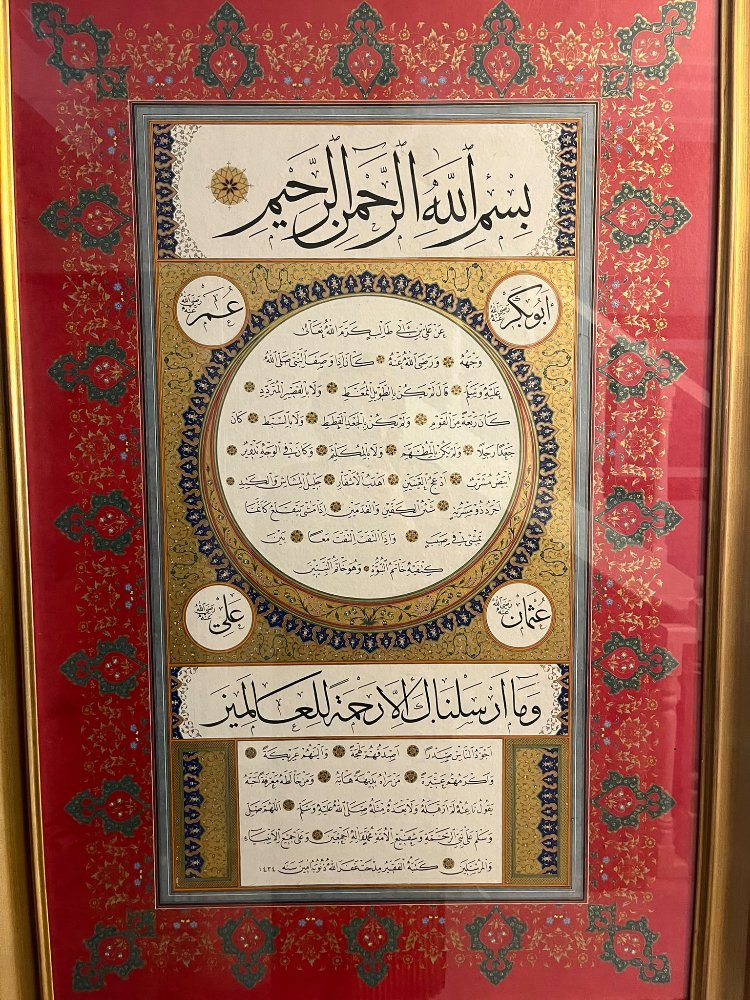 بِسْمِ اللَّهِ الرَّحْمٰنِ الرَّحِيمِ
أبوبكر رضي الله عنه
عُمَر رضي الله عنه
عَنْ عَلِيِّ بْنِ أَبِي طَالِبٍ كَرَّمَ اللهُ تَعَالَى
وَجْهَهُ وَرَضِيَ اللهُ عَنْهُ كَانَ إِذَا وَصَفَ النَّبِيَّ صَلَّى اللهُ
عَلَيْهِ وَسَلَّمَ قَالَ لَمْ يَكُنْ بِالطَّوِيلِ الْمُمَّغِطِ وَلَا بِالْقَصِيرِ الْمُتَرَدِّدِ
كَانَ رَبْعَةً مِنَ الْقَوْمِ وَلَمْ يَكُنْ بِالْجَعْدِ الْقَطَطِ وَلَا بِالسَّبِطِ كَانَ
جَعْدًا رَجِلًا وَلَمْ يَكُنْ بِالْمُطَهَّمِ وَلَا بِالْمُكَلْثَمِ وَكَانَ فِي الْوَجْهِ تَدْوِيرٌ
أَبْيَضُ مُشْرَبٌ أَدْعَجُ الْعَيْنَيْنِ أَهْدَبُ الْأَشْفَارِ جَلِيلُ الْمُشَاشِ وَالْكَتِدِ
أَجْرَدُ ذُو مَسْرُبَةٍ شَثْنُ الْكَفَّيْنِ وَالْقَدَمَيْنِ إِذَا مَشَى يَتَقَلَّعُ كَأَنَّمَا
يَمْشِي فِي صَبَبٍ وَإِذَا الْتَفَتَ الْتَفَتَ مَعًا بَيْنَ
كَتِفَيْهِ خَاتَمُ النُّبُوَّةِ وَهُوَ خَاتَمُ النَّبِيِّينَ
عُثمان رضي الله عنه
عَلي رضي الله عنه
وَمَا أَرْسَلْنَاكَ إِلَّا رَحْمَةً لِلْعَالَمِينَ
أَجْوَدُ النَّاسِ صَدْرًا أَصْدَقُهُمْ لَهْجَةً وَأَلْيَنُهُمْ عَرِيكَةً
وَأَكْرَمُهُمْ عَشِيرَةً مَنْ رَآهُ بَدِيهَةً هَابَهُ وَمَنْ خَالَطَهُ مَعْرِفَةً أَحَبَّهُ
يَقُولُ نَاعِتُهُ لَمْ أَرَ قَبْلَهُ وَلَا بَعْدَهُ مِثْلَهُ صَلَّى اللهُ عَلَيْهِ وَسَلَّمَ اللَّهُمَّ صَلِّ
وَسَلِّمْ عَلَى نَبِيِّ الرَّحْمَةِ وَشَفِيعِ الْأُمَّةِ مُحَمَّدٍ وَآلِهِ أَجْمَعِينَ وَعَلَى جَمِيعِ الْأَنْبِيَاءِ
وَالْمُرْسَلِينَ كَتَبَهُ الْفَقِيرُ غَفَرَ اللهُ ذُنُوبَهُ آمِين سنه ١٤٣٤